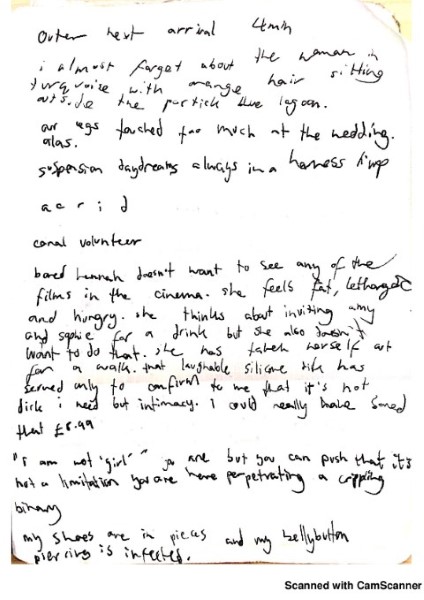 Outer next arrival 4min
i almost forget about the woman in
turquoise with orange hair sitting
outside the partick blue lagoon.
our legs touched too much at the wedding.
alas.
suspension daydreams always in a harness limp
a c r i d
canal volunteer
bored hannah doesn't want to see any of the
films in the cinema. she feels fat, lethargic
and hungry. she thinks about inviting amy
and sophie for a drink but she also doesn't
want to do that. she has taken herself out
for a walk. that laughable silicone has
served only to confirm to me that it's not
dick i need but intimacy. i could really have saved
that £8.99
"i am not 'girl'" you are but you can push that it's
not a limitation you are here perpetrating a crippling
binary
my shoes are in pieces and my bellybutton
piercing is infected.
Scanned with CamScanner